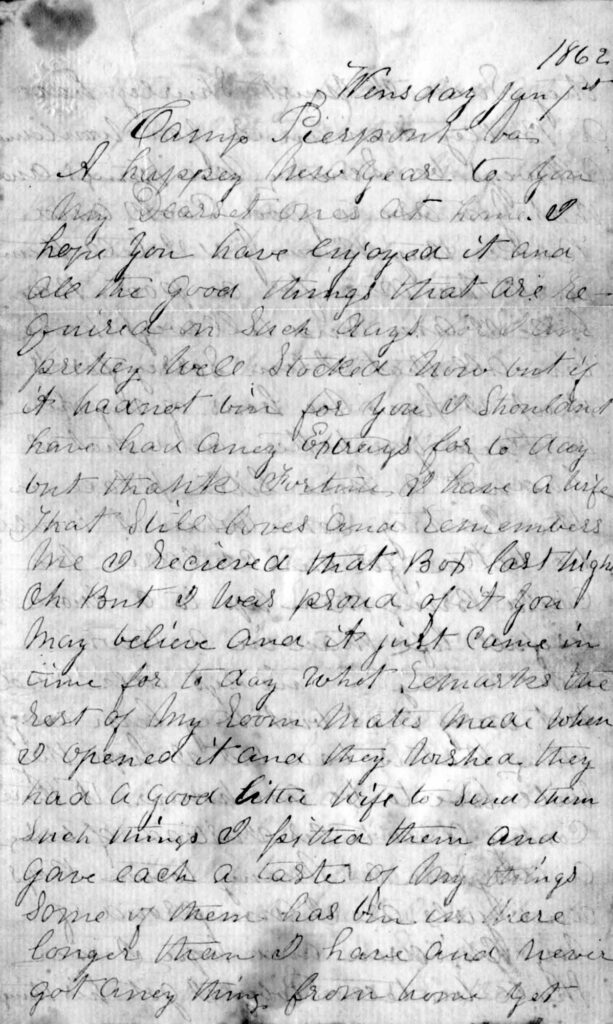 1862
Wensday Jany 1st
Camp Pierpont Va
A happey New Year to You
My Dearest ones at home. I
hope You have enjoyed it and
all the Good things that are re-
quired on Such days I am
pretty Well Stocked Now but if
it had not bin for You I Shouldnt
have had aney Extrays for to day
but thank Fortune I have a wife
That Still loves and remembers
Me I recieved that Box last night
Oh But I Was proud of it You
May believe and it just Came in
time for to day What remarks the
rest of My room Mates Made When
I opened it and they Wished they
had a good little Wife to Send them
Such things I pitted them and
Gave each a taste of My things
Some of them has bin in there
longer than I have and never
got aney thing from home yet